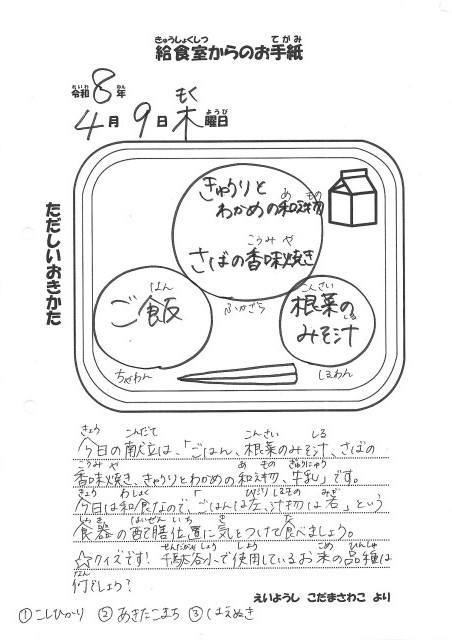 きゅうしょくしつ てがみ
給食室からのお手紙
れいわ ねん もく ようび
令和8年
4月9日木曜日
ただしいおきかた
きゅうりと
わかめの和え物
あ もの
こうみ や
さばの香味焼き
はん
ご飯
ふかざら
こんさい
根菜の
しる
みそ汁
ちゃわん
しるわん
きょう こんだて こんさい しる
今日の献立は、「ごはん、根菜のみそ汁、さばの
こうみ や あ もの ぎゅうにゅう
香味焼き、きゅうりとわかめの和え物、牛乳」です。
きょう わしょく ひだり しるもの みぎ
今日は和食なので、「ごはんは左、汁物は右」という
しょっき はいぜん いち き た
食器の配膳位置に気をつけて食べましょう。
せんだがやしょう しよう こめ ひんしゅ
☆クイズです!千駄谷小で使用しているお米の品種は
なん
何でしょう?
①こしひかり ②あきたこまち ③はえぬき
えいようし こだまさわこ より